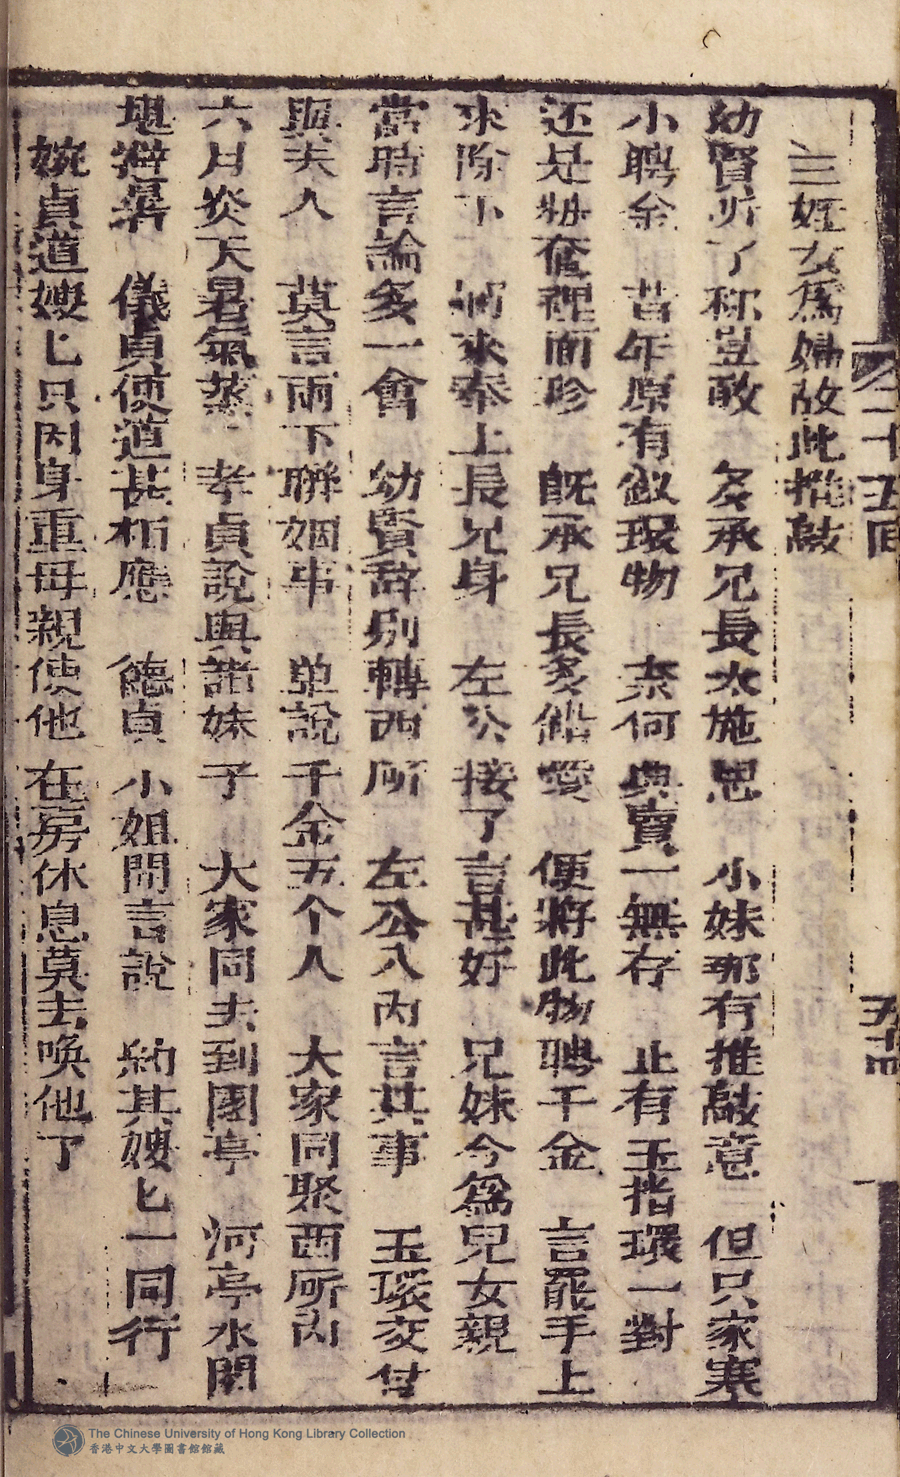 二十五回
五十四
三姪女爲婦故此推敲
幼賢听了称豈敢 多承兄長太施恩 小妹那有推敲意 但只家寒
小聘金 昔年原有釵環物 奈何典賣一無存 止有玉指環一對
还是妝奩裡面珍 既承兄長多錯愛 便將此物聘千金 言罷手上
來除下 遞來奉上長兄身 左公接了言甚好 兄妹今爲兒女親
當時言論多一會 幼賢辞別轉西所 左公入內言其事 玉環交付
與夫人 莫言兩下聯姻事 单說千金五个人 大家同聚西所內
六月炎天暑氣蒸 孝貞說與諸妹子 大家同去到園亭 河亭水閣
堪避暑 儀貞便道甚相應 德貞小姐開言說 約其嫂匕一同行
婉貞道嫂匕只因身重母親使他在房休息莫去喚他了
The Chinese University of Hong Kong Library Collection
香港中文大學圖書館館藏